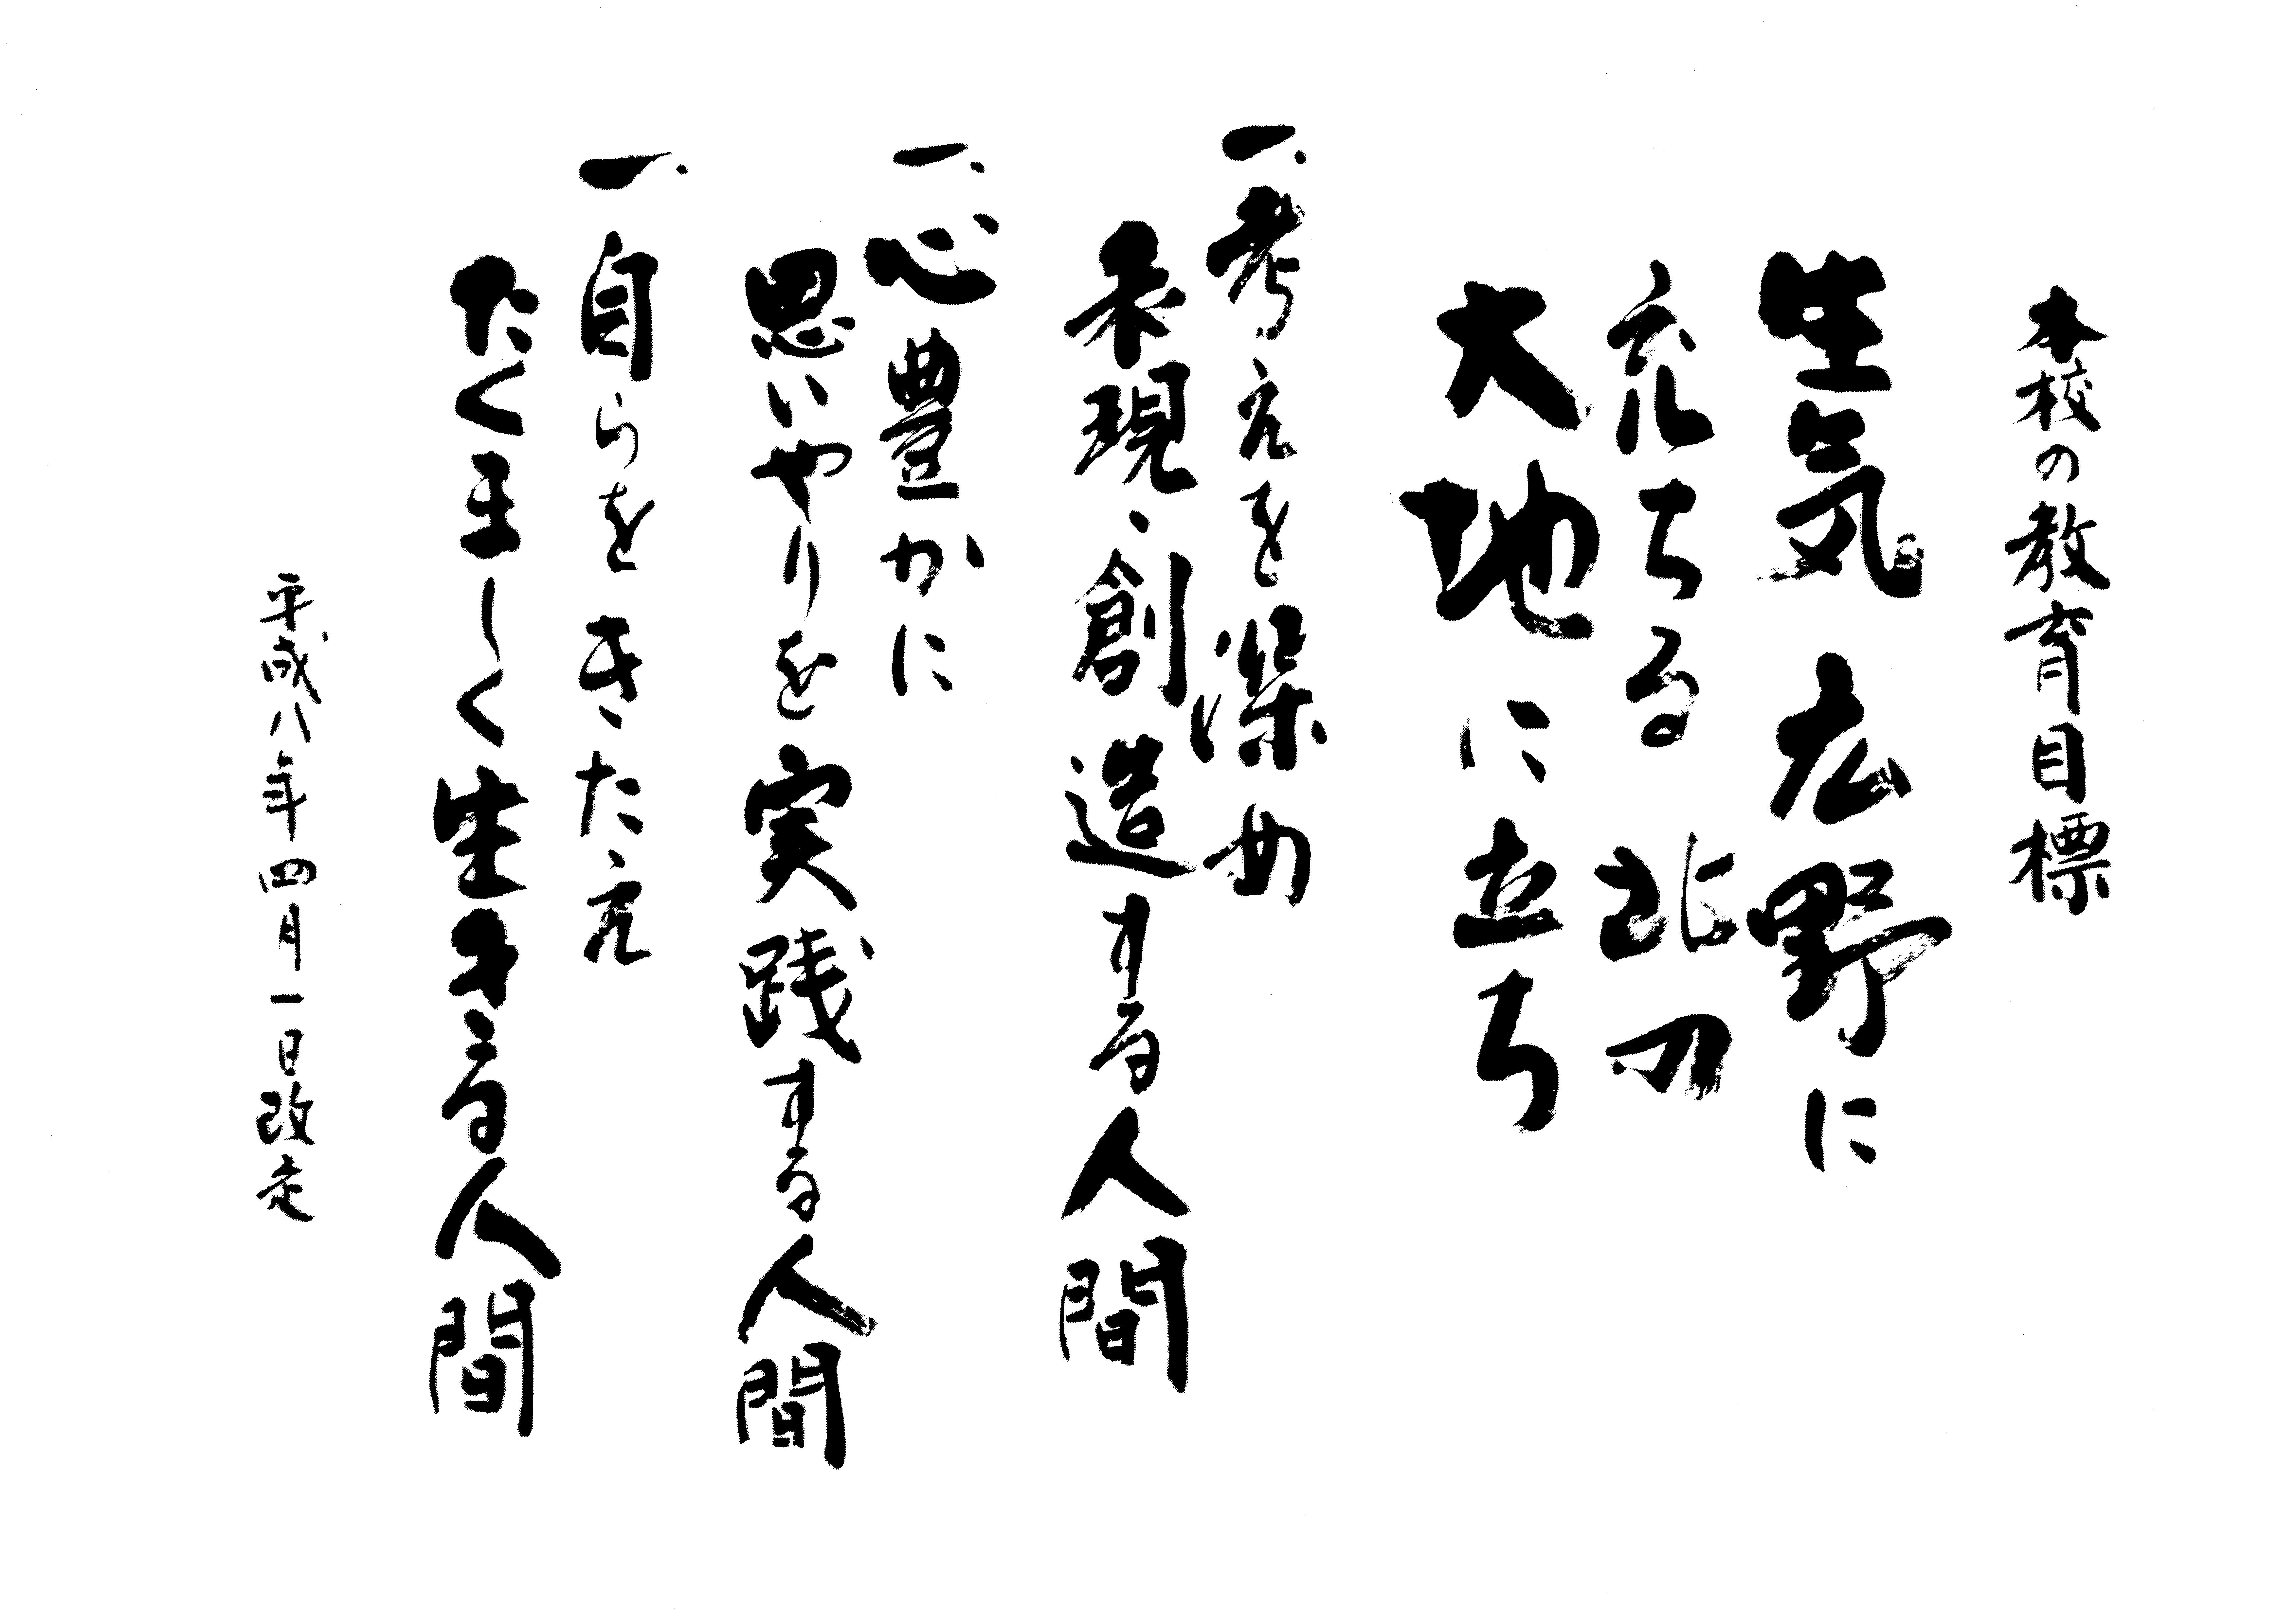 本校の教育目標
生気広野に
充ちる北の
大地に立ち
一、考えを深め
表現、創造する人間
一、心豊かに
思いやりを実践する人間
一、自らをきたえ
たくましく生きる人間
平成八年四月一日改定